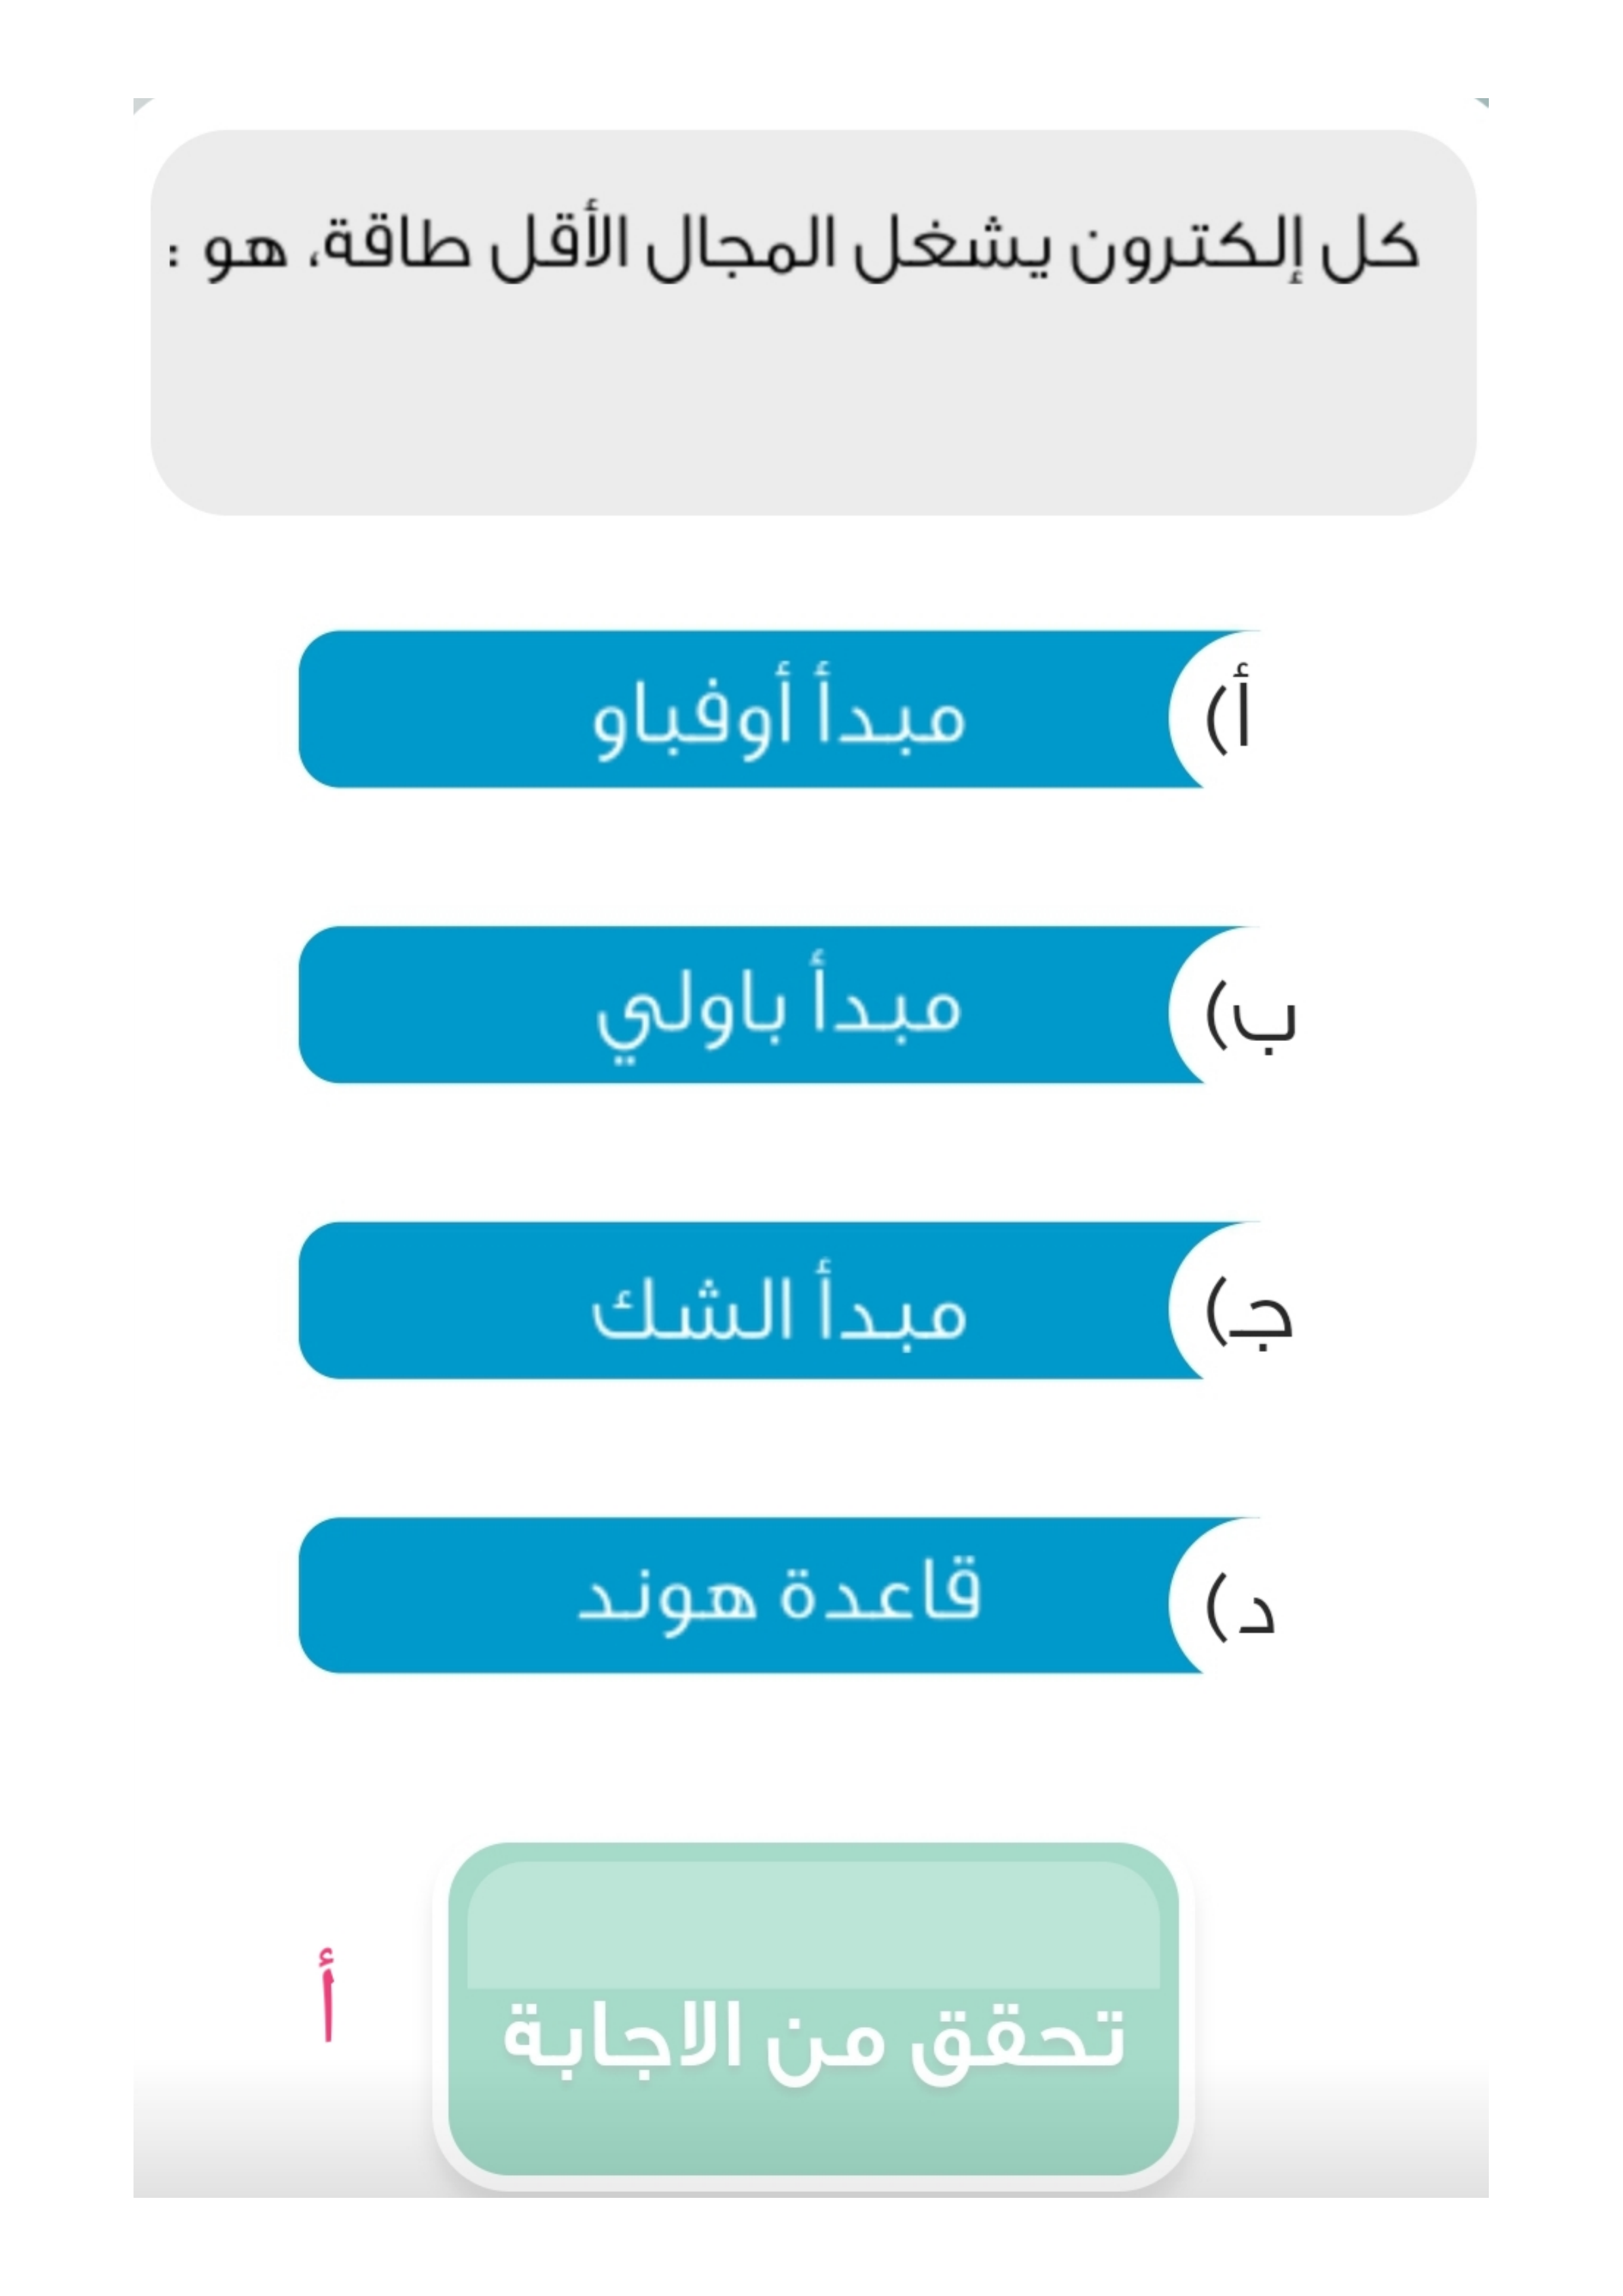 كل إلكترون يشغل المجال الأقل طاقة، هو :
أ)
مبدأ أوفباو
ب)
مبدأ باولي
جـ)
مبدأ الشك
د)
قاعدة هوند
تحقق من الاجابة
أ